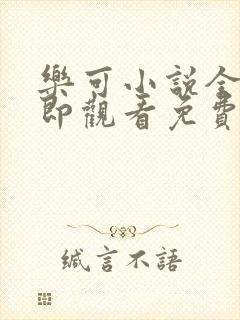 樂可小說全
即觀看免費
緘言不語